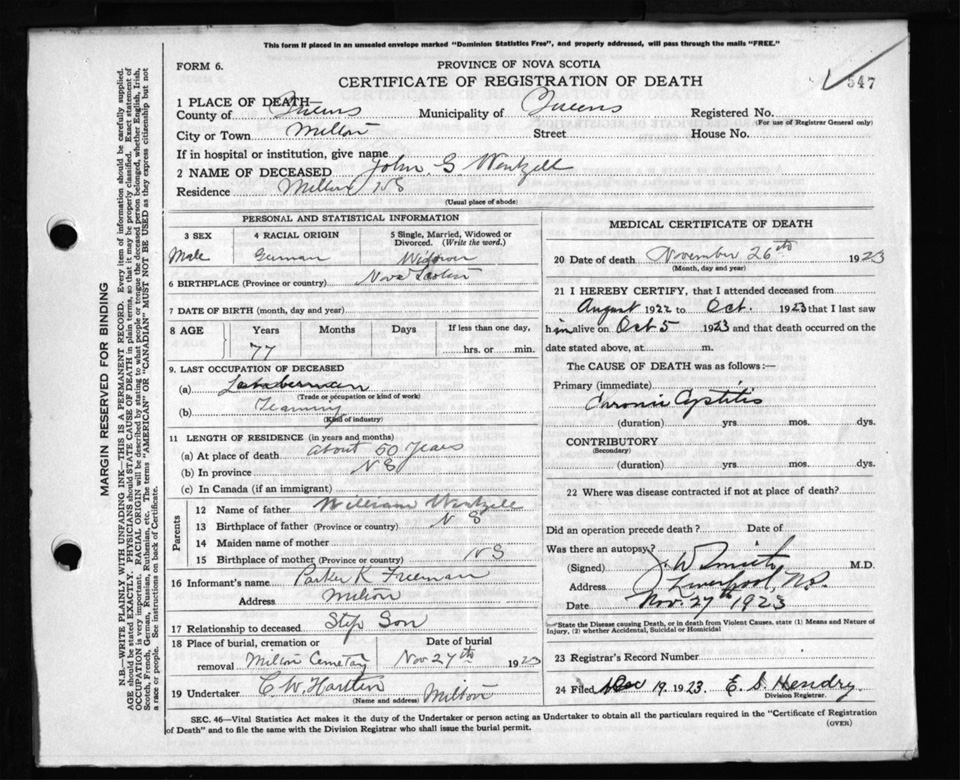 This form if placed in an unsealed envelope marked "Dominion Statistics Free", and properly addressed, will pass through the mails "FREE."
FORM 6.
PROVINCE OF NOVA SCOTIA
CERTIFICATE OF REGISTRATION OF DEATH
547
1 PLACE OF DEATH
County of Queens Municipality of Queens Registered No.
(For use of Registrar General only)
City or Town Milton Street House No.
If in hospital or institution, give name
2 NAME OF DECEASED John G Wentzell
Residence Milton NS
(Usual place of abode)
MARGIN RESERVED FOR BINDING
N.B.—WRITE PLAINLY WITH UNFADING INK—THIS IS A PERMANENT RECORD. Every item of information should be carefully supplied.
AGE should be stated EXACTLY. PHYSICIANS should STATE CAUSE OF DEATH in plain terms, so that it may be properly classified. Exact statement of
OCCUPATION is very important. RACIAL ORIGIN will be described by stating to what people or tongue the deceased person belonged, whether English, Irish,
Scotch, French, German, Russian, Ruthenian, etc. The terms "AMERICAN" OR "CANADIAN" MUST NOT BE USED as they express citizenship but not
a race or people. See instructions on back of Certificate.
PERSONAL AND STATISTICAL INFORMATION
3 SEX
Male
4 RACIAL ORIGIN
German
5 Single, Married, Widowed or
Divorced. (Write the word.)
Widower
6 BIRTHPLACE (Province or country) Nova Scotia
7 DATE OF BIRTH (month, day and year)
8 AGE Years Months Days If less than one day,
77 hrs. or min.
9. LAST OCCUPATION OF DECEASED
(a)
(Trade or occupation or kind of work)
(b) Teaming
(Kind of industry)
11 LENGTH OF RESIDENCE (in years and months)
(a) At place of death about 50 Years
(b) In province NS
(c) In Canada (if an immigrant)
Parents
12 Name of father William Wentzell
13 Birthplace of father (Province or country) NS
14 Maiden name of mother
15 Birthplace of mother (Province or country) NS
16 Informant's name Parker K Freeman
Address Milton
17 Relationship to deceased Step Son
18 Place of burial, cremation or
removal Milton Cemetary
Date of burial
Nov 27th 1923
19 Undertaker C. W. Milton
(Name and address)
MEDICAL CERTIFICATE OF DEATH
20 Date of death November 26th 1923
(Month, day and year)
21 I HEREBY CERTIFY, that I attended deceased from
August 1922 to Oct. 1923 that I last saw
him alive on Oct 5 1923 and that death occurred on
date stated above, at m.
The CAUSE OF DEATH was as follows:—
Primary (immediate)
Chronic Cystitis
(duration) yrs. mos. dys.
CONTRIBUTORY
(Secondary)
(duration) yrs. mos. dys.
22 Where was disease contracted if not at place of death?
Did an operation precede death? Date of
Was there an autopsy?
(Signed) J. W. Smith M.D.
Address Liverpool, NS.
Date Nov. 27th 1923
State the Disease causing Death, or in death from Violent Causes, state (1) Means and Nature of
Injury, (2) whether Accidental, Suicidal or Homicidal
23 Registrar's Record Number
24 Filed Dec 19. 1923. E. S. Hendry
Division Registrar.
SEC. 46—Vital Statistics Act makes it the duty of the Undertaker or person acting as Undertaker to obtain all the particulars required in the "Certificate of Registration
of Death" and to file the same with the Division Registrar who shall issue the burial permit.
(OVER)